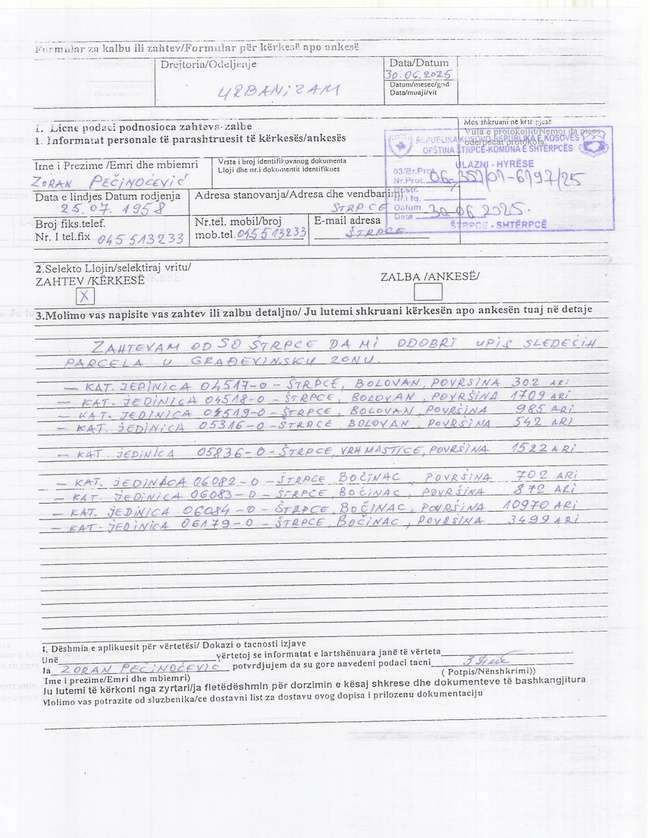 Formular za kalbu ili zahtev/Formular për kërkesë apo ankesë
Drejtoria/Odeljenje
URBANiZAM
Data/Datum
30.06.2025
Datum/mesec/god
Data/muaji/vit
1. Licne podaci podnosioca zahteva-zalbe
1. Informatat personale të parashtruesit të kërkesës/ankesës
Mos shkruani në këtë pjesë
Vula e protokollit/Nemoj da pises
odje/pecat protokola
REPUBLIKA KOSOVA-REPUBLIKA E KOSOVËS
OPŠTINA ŠTRPCE-KOMUNA E SHTËRPCËS
ULAZNI - HYRËSE
03/Br.Prot.
Nr.Prot.
06-357/01-6797/25
Datum
Data
30.06 2025.
ŠTRPCE - SHTËRPCË
Ime i Prezime /Emri dhe mbiemri
ZORAN PEČINOĆEVIĆ
Vrsta i broj identifikovanog dokumenta
Lloji dhe nr.i dokumentit identifikues
Data e lindjes Datum rodjenja
25.07.1958
Adresa stanovanja/Adresa dhe vendbanimi
ŠTRPCE
Broj fiks.telef.
Nr. I tel.fix 045 513233
Nr.tel. mobil/broj
mob.tel. 045513233
E-mail adresa
ŠTRPCE
2.Selekto Llojin/selektiraj vritu/
ZAHTEV /KËRKESË
X
ZALBA /ANKESË/
3.Molimo vas napisite vas zahtev ili zalbu detaljno/ Ju lutemi shkruani kërkesën apo ankesën tuaj në detaje
ZAHTEVAM OD SO ŠTRPCE DA MI ODOBRI UPIS SLEDEĆIH
PARCELA U GRAĐEVINSKU ZONU.
— KAT. JEDINICA 04517-0 - ŠTRPCE, BOLOVAN, POVRŠINA 302 ARI
— KAT. JEDINICA 04518-0 - ŠTRPCE, BOLOVAN, POVRŠINA 1709 ARI
— KAT. JEDINICA 04519-0 - ŠTRPCE, BOLOVAN, POVRŠINA 985 ARI
— KAT. JEDINICA 05316-0 - ŠTRPCE BOLOVAN, POVRŠINA 542 ARI
— KAT. JEDINICA 05836-0 - ŠTRPCE, VRH MASTICE, POVRŠINA 1522 ARI
— KAT. JEDINICA 06082-0 - ŠTRPCE BOČINAC, POVRŠINA 702 ARI
— KAT. JEDINICA 06083-0 - ŠTRPCE, BOČINAC, POVRŠINA 872 ARI
— KAT. JEDINICA 06084-0 - ŠTRPCE, BOČINAC, POVRŠINA 10970 ARI
— KAT. JEDINICA 06179-0 - ŠTRPCE, BOČINAC, POVRŠINA 3499 ARI
4. Dëshmia e aplikuesit për vërtetësi/ Dokazi o tacnosti izjave
Unë vërtetoj se informatat e lartshënuara janë të vërteta
Ja ZORAN PEČINOĆEVIĆ potvrdjujem da su gore navedeni podaci tacni
Ime i prezime/Emri dhe mbiemri)
( Potpis/Nënshkrimi))
Ju lutemi të kërkoni nga zyrtari/ja fletëdëshmin për dorzimin e kësaj shkrese dhe dokumenteve të bashkangjitura
Molimo vas potrazite od sluzbenika/ce dostavni list za dostavu ovog dopisa i prilozenu dokumentaciju